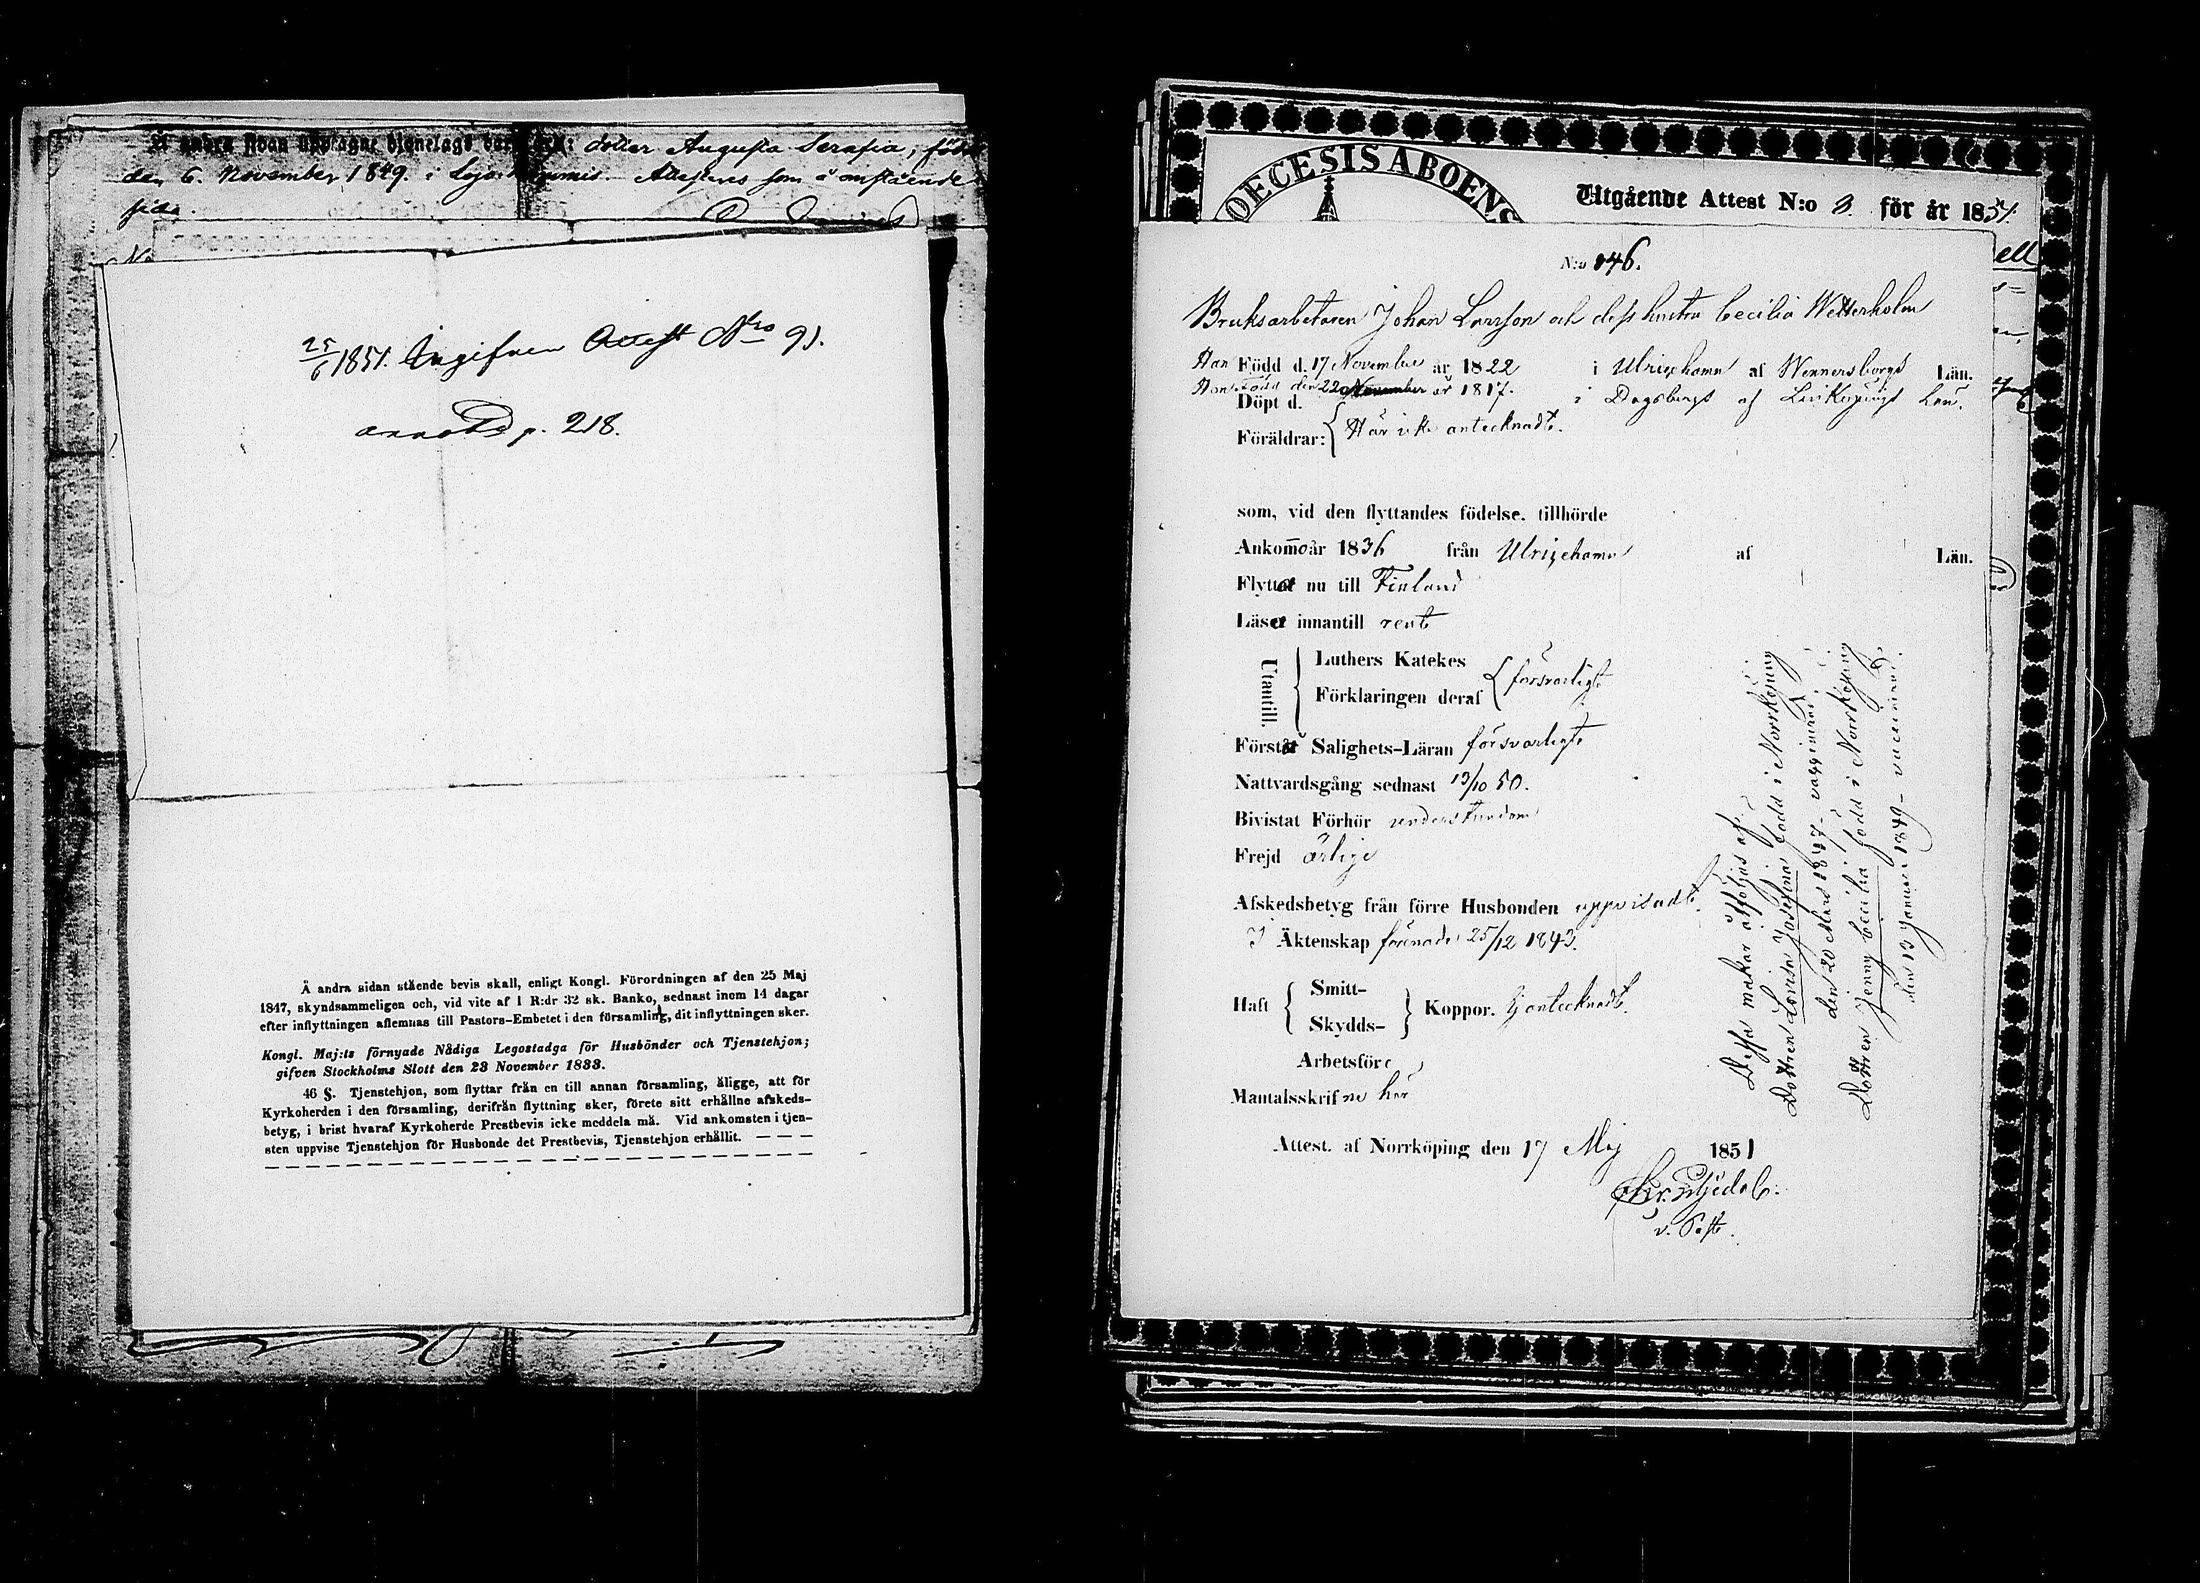 dotter Augusta Serafia, född
den 6. November 1849. i Attesteras som å omstående
sida.
25/6 1851. Ingifven Attest Nro 91.
annot p. 218.
Å andra sidan stående bevis skall, enligt Kongl. Förordningen af den 25 Maj
1847, skyndsammeligen och, vid vite af 1 R:dr 32 sk. Banko, sednast inom 14 dagar
efter inflyttningen aflemnas till Pastors-Embetet i den församling, dit inflyttningen sker.
Kongl. Maj:ts förnyade Nådiga Legostadga för Husbönder och Tjenstehjon;
gifven Stockholms Slott den 23 November 1833.
46 §. Tjenstehjon, som flyttar från en till annan församling, åligge, att för
Kyrkoherden i den församling, derifrån flyttning sker, förete sitt erhållne afskeds-
betyg, i brist hvaraf Kyrkoherde Prestbevis icke meddela må. Vid ankomsten i tjen-
sten uppvise Tjenstehjon för Husbonde det Prestbevis, Tjenstehjon erhållit. — — —
OECESIS ABOENS
Utgående Attest N:o 3. för år 1851.
ell
N:o 146.
Bruksarbetaren Johan Larsson och dess hustru Cecilia Wetterholm
Han Född d. 17 November år 1822 i Ulricehamn af Wennersborgs Län.
Hon Född den 22 November år 1817. i Dagsbergs af Linköpings Län.
Döpt d.
Föräldrar: { Här icke antecknade.
som, vid den flyttandes födelse, tillhörde
Ankommo år 1836 från Ulricehamn af Län.
Flytta nu till Finland
Läsa innantill rent
Utantill. { Luthers Katekes
Förklaringen deraf { försvarligt
Förstå Salighets-Läran försvarligt
Nattvardsgång sednast 13/10 50.
Bivistat Förhör understundom
Frejd ärlige
Afskedsbetyg från förre Husbonden uppvisadt.
I Äktenskap förenade 25/12 1843.
Haft { Smitt-
Skydds- } Koppor. Ej antecknadt.
Arbetsföre
Mantalsskrifne här
Attest. af Norrköping den 17 Maj 1851
v. Past.
Dessa makar åtföljas af
Dottren Lovisa Josefina född i Norrköping
den 20 Mars 1847 - vaccinerad,
Dottren Jenny Cecilia född i Norrköping
den 13 Januari 1849 - vaccinerad.